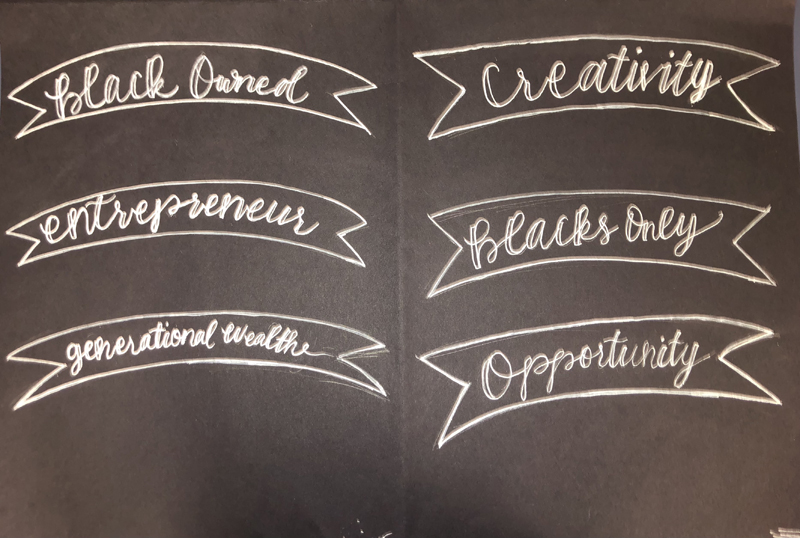 Black Owned
entrepreneur
generational wealth
Creativity
Blacks Only
Opportunity